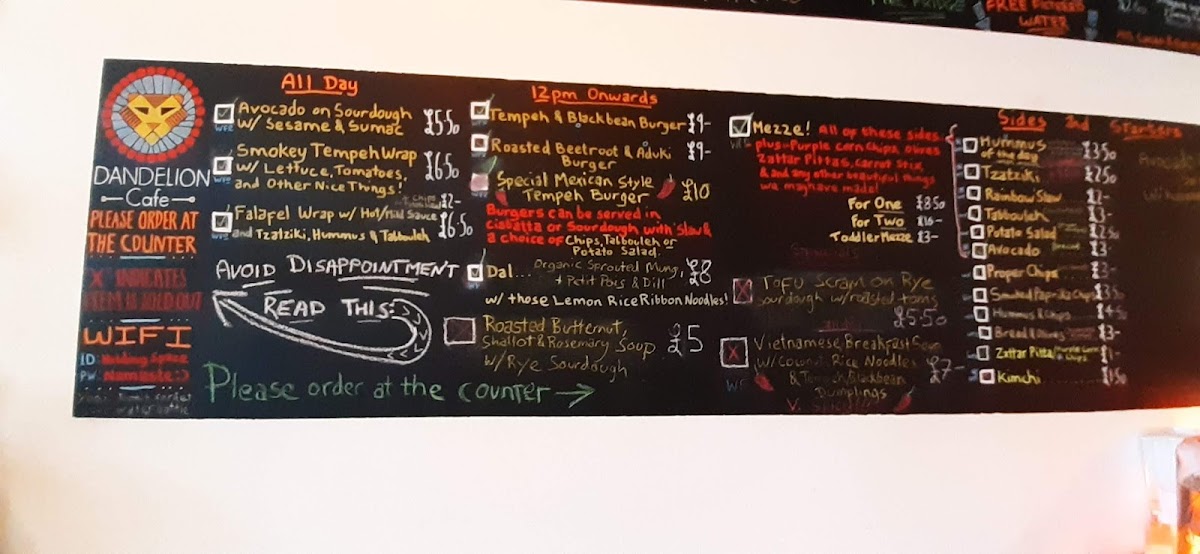 FREE Filtered
WATER
DANDELION
Cafe
PLEASE ORDER AT
THE COUNTER
X INDICATES
ITEM IS SOLD OUT
WIFI
ID: Holding Space
PW: Namaste :)
All Day
Avocado on Sourdough
w/ Sesame & Sumac £5.50
Smokey Tempeh Wrap
w/ Lettuce, Tomatoes, £6.50
and Other Nice Things!
£2-
Falafel Wrap w/ Hot/Mild Sauce
and Tzatziki, Hummus & Tabbouleh £6.50
AVOID DISAPPOINTMENT
READ THIS:
Please order at the counter →
12pm Onwards
Tempeh & Blackbean Burger £9-
Roasted Beetroot & Aduki £9-
Burger
Special Mexican Style
Tempeh Burger £10
Burgers can be served in
Ciabatta or Sourdough with 'Slaw &
a choice of Chips, Tabbouleh or
Potato Salad.
Dal... Organic Sprouted Mung, £8
+ Petit Pois & Dill
w/ those Lemon Rice Ribbon Noodles!
Roasted Butternut,
Shallot & Rosemary Soup £5
w/ Rye Sourdough
Mezze! All of these sides
plus-Purple corn Chips, olives
Zattar Pittas, Carrot Stix,
& and any other beautiful things
we may have made!
For One £8.50
For Two £16-
Toddler Mezze £3-
Tofu Scram on Rye
Sourdough w/roasted toms
£5.50
Vietnamese Breakfast Soup
w/ Coconut Rice Noodles £7-
& Tempeh/Blackbean
Dumplings
Sides and Starters
Hummus £3.50
of the day
Tzatziki £2.50
Rainbow Slaw £2-
Tabbouleh £3-
Potato Salad £2.50
Avocado £3-
Proper Chips £3-
Smoked Paprika Chips £3.50
Hummus & Chips £4.50
Bread & £3-
Zattar Pitta/ £1-
Kimchi £1.50